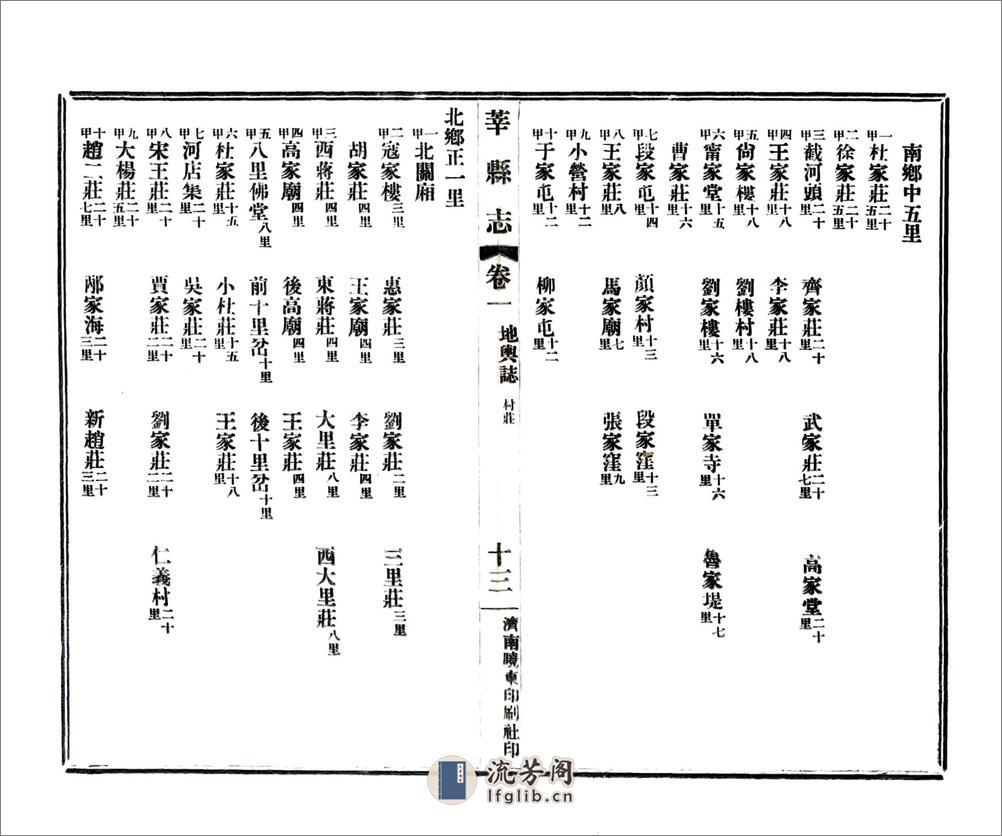 南鄉中五里
一甲杜家莊二十五里
二甲徐家莊二十五里
三甲截河頭二十里 齊家莊二十里 武家莊二十七里 高家堂二十里
四甲王家莊十八里 李家莊十八里
五甲尙家樓十八里 劉樓村十八里
六甲甯家堂十五里 劉家樓十六里 單家寺十六里 魯家堤十七里
曹家莊十六里
七甲段家屯十四里 顏家村十三里 段家窪十三里
八甲王家莊八里 馬家廟七里 張家窪九里
九甲小營村十二里
十甲于家屯十二里 柳家屯十二里
莘縣志 卷一 地輿誌 村莊 十三 濟南曉東印刷社印
北鄉正一里
一甲北關廂
二甲寇家樓三里 惠家莊三里 劉家莊二里 三里莊三里
胡家莊四里 王家廟四里 李家莊四里
三甲西蔣莊四里 東蔣莊四里 大里莊八里 西大里莊八里
四甲高家廟四里 後高廟四里 王家莊四里
五甲八里佛堂八里 前十里岔十里 後十里岔十里
六甲杜家莊十五里 小杜莊十五里 王家莊十八里
七甲河店集二十里 吳家莊二十里
八甲宋王莊二十里 賈家莊二十二里 劉家莊二十二里 仁義村二十里
九甲大楊莊二十五里
十甲趙二莊二十七里 邴家海二十三里 新趙莊二十三里
流芳阁
lfglib.cn